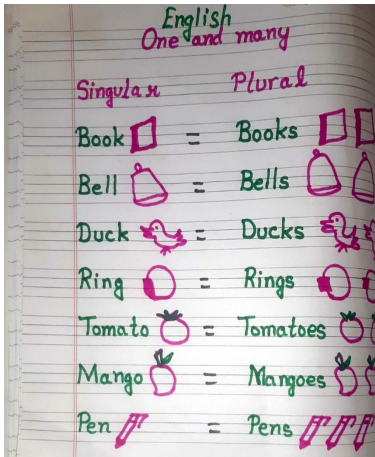 English
One and many
Singular Plural
Book = Books
Bell = Bells
Duck = Ducks
Ring = Rings
Tomato = Tomatoes
Mango = Mangoes
Pen = Pens